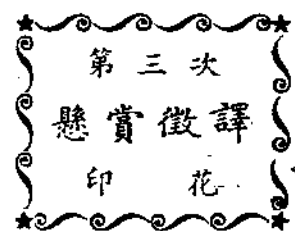 第三次
懸賞徵譯
印花